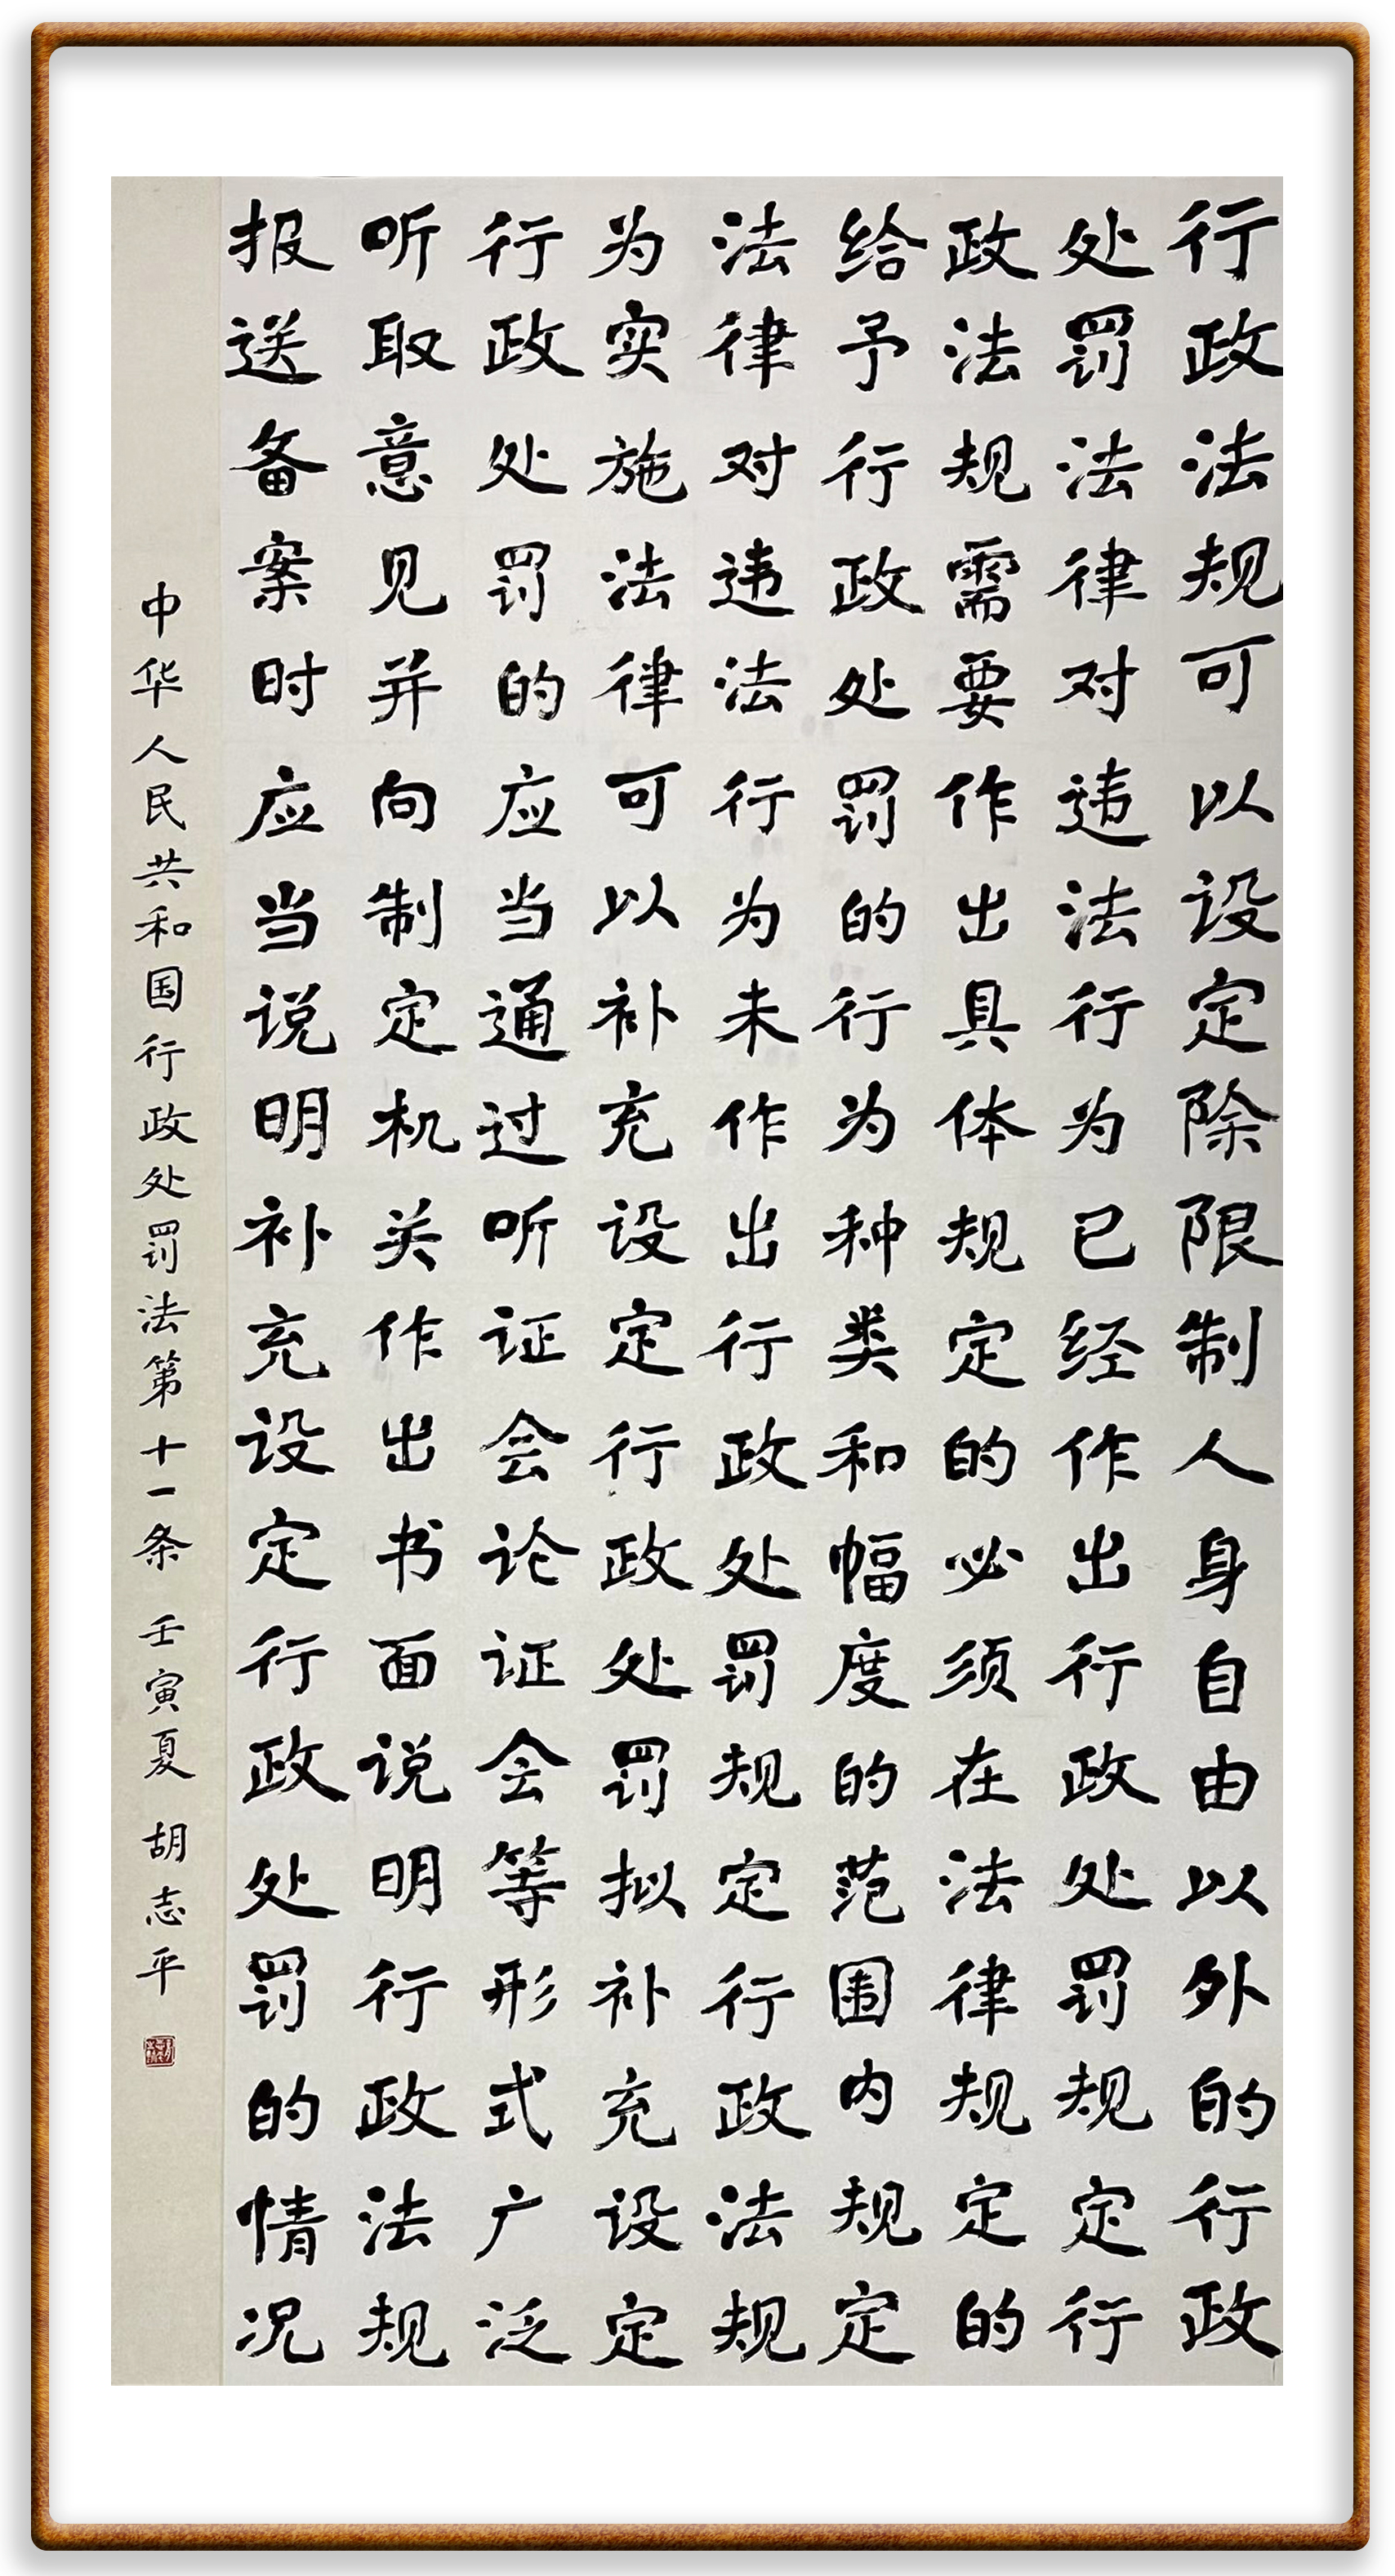 行政法规可以设定除限制人身自由以外的行政
处罚法律对违法行为已经作出行政处罚规定行
政法规需要作出具体规定的必须在法律规定的
给予行政处罚的行为种类和幅度的范围内规定
法律对违法行为未作出行政处罚规定行政法规
为实施法律可以补充设定行政处罚拟补充设定
行政处罚的应当通过听证会论证会等形式广泛
听取意见并向制定机关作出书面说明行政法规
报送备案时应当说明补充设定行政处罚的情况
中华人民共和国行政处罚法第十一条 壬寅夏 胡志平